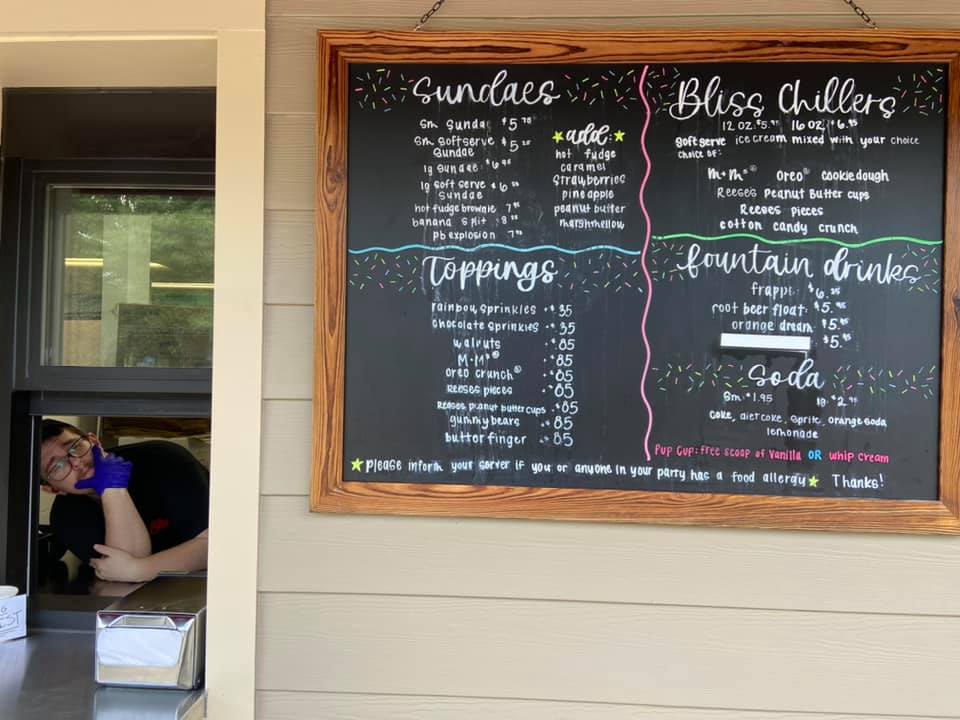 Sundaes
Sm Sunda $5
Sm Soft serve $5
Sundae
lg Sundae $6
lg soft serve $6
Sundae
hot fudge brownie 7
banana split 8
pb explosion 7
★add:★
hot fudge
caramel
Strawberries
pineapple
peanut butter
marshmellow
Toppings
rainbow sprinkles +.35
chocolate sprinkles +.35
walnuts +.85
M+M's® +.85
oreo crunch® +.85
Reeses pieces +.85
Reeses peanut butter cups +.85
gummy bears +.85
butterfinger +.85
Bliss Chillers
12 oz. $5. 16 oz. $6.95
Soft serve ice cream mixed with your choice
choice of:
M+M's® oreo® cookie dough
Reeses Peanut Butter cups
Reeses pieces
cotton candy crunch
fountain drinks
frappe $6.
root beer float $5.95
orange dream $5.95
$5.95
Soda
Sm. $1.95 lg. $2.
coke, diet coke, sprite, orange soda
lemonade
Pup Cup: free scoop of Vanilla OR whip cream
★please inform your server if you or anyone in your party has a food allergy★ Thanks!